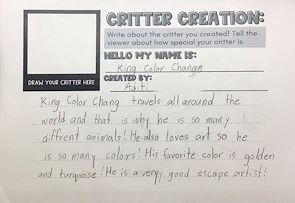 CRITTER CREATION:
Write about the critter you created! Tell the
viewer about how special your critter is.
HELLO MY NAME IS:
King Color Change
CREATED BY:
Aditi
DRAW YOUR CRITTER HERE
King Color Chang travels all around the
world and that is why he is so many
diffrent animals! He also loves art so he
is so many colors! His favorite color is golden
and turquoise! He is a very good escape artist!